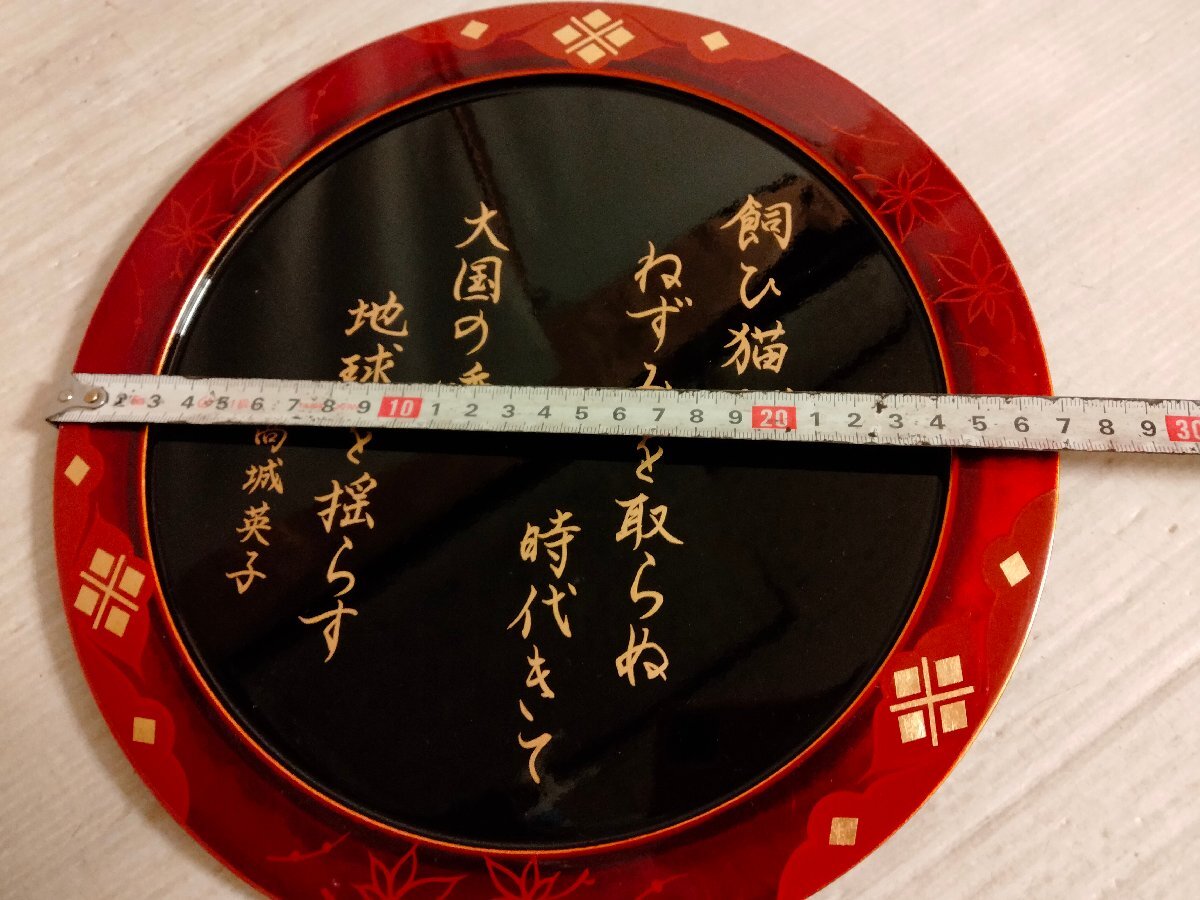 飼ひ猫
ねずみ
を取らぬ
時代きて
大国の
地球
を揺らす
城英子
2 3 4 5 6 7 8 9 10 1 2 3 4 5 6 7 8 9 20 1 2 3 4 5 6 7 8 9 30